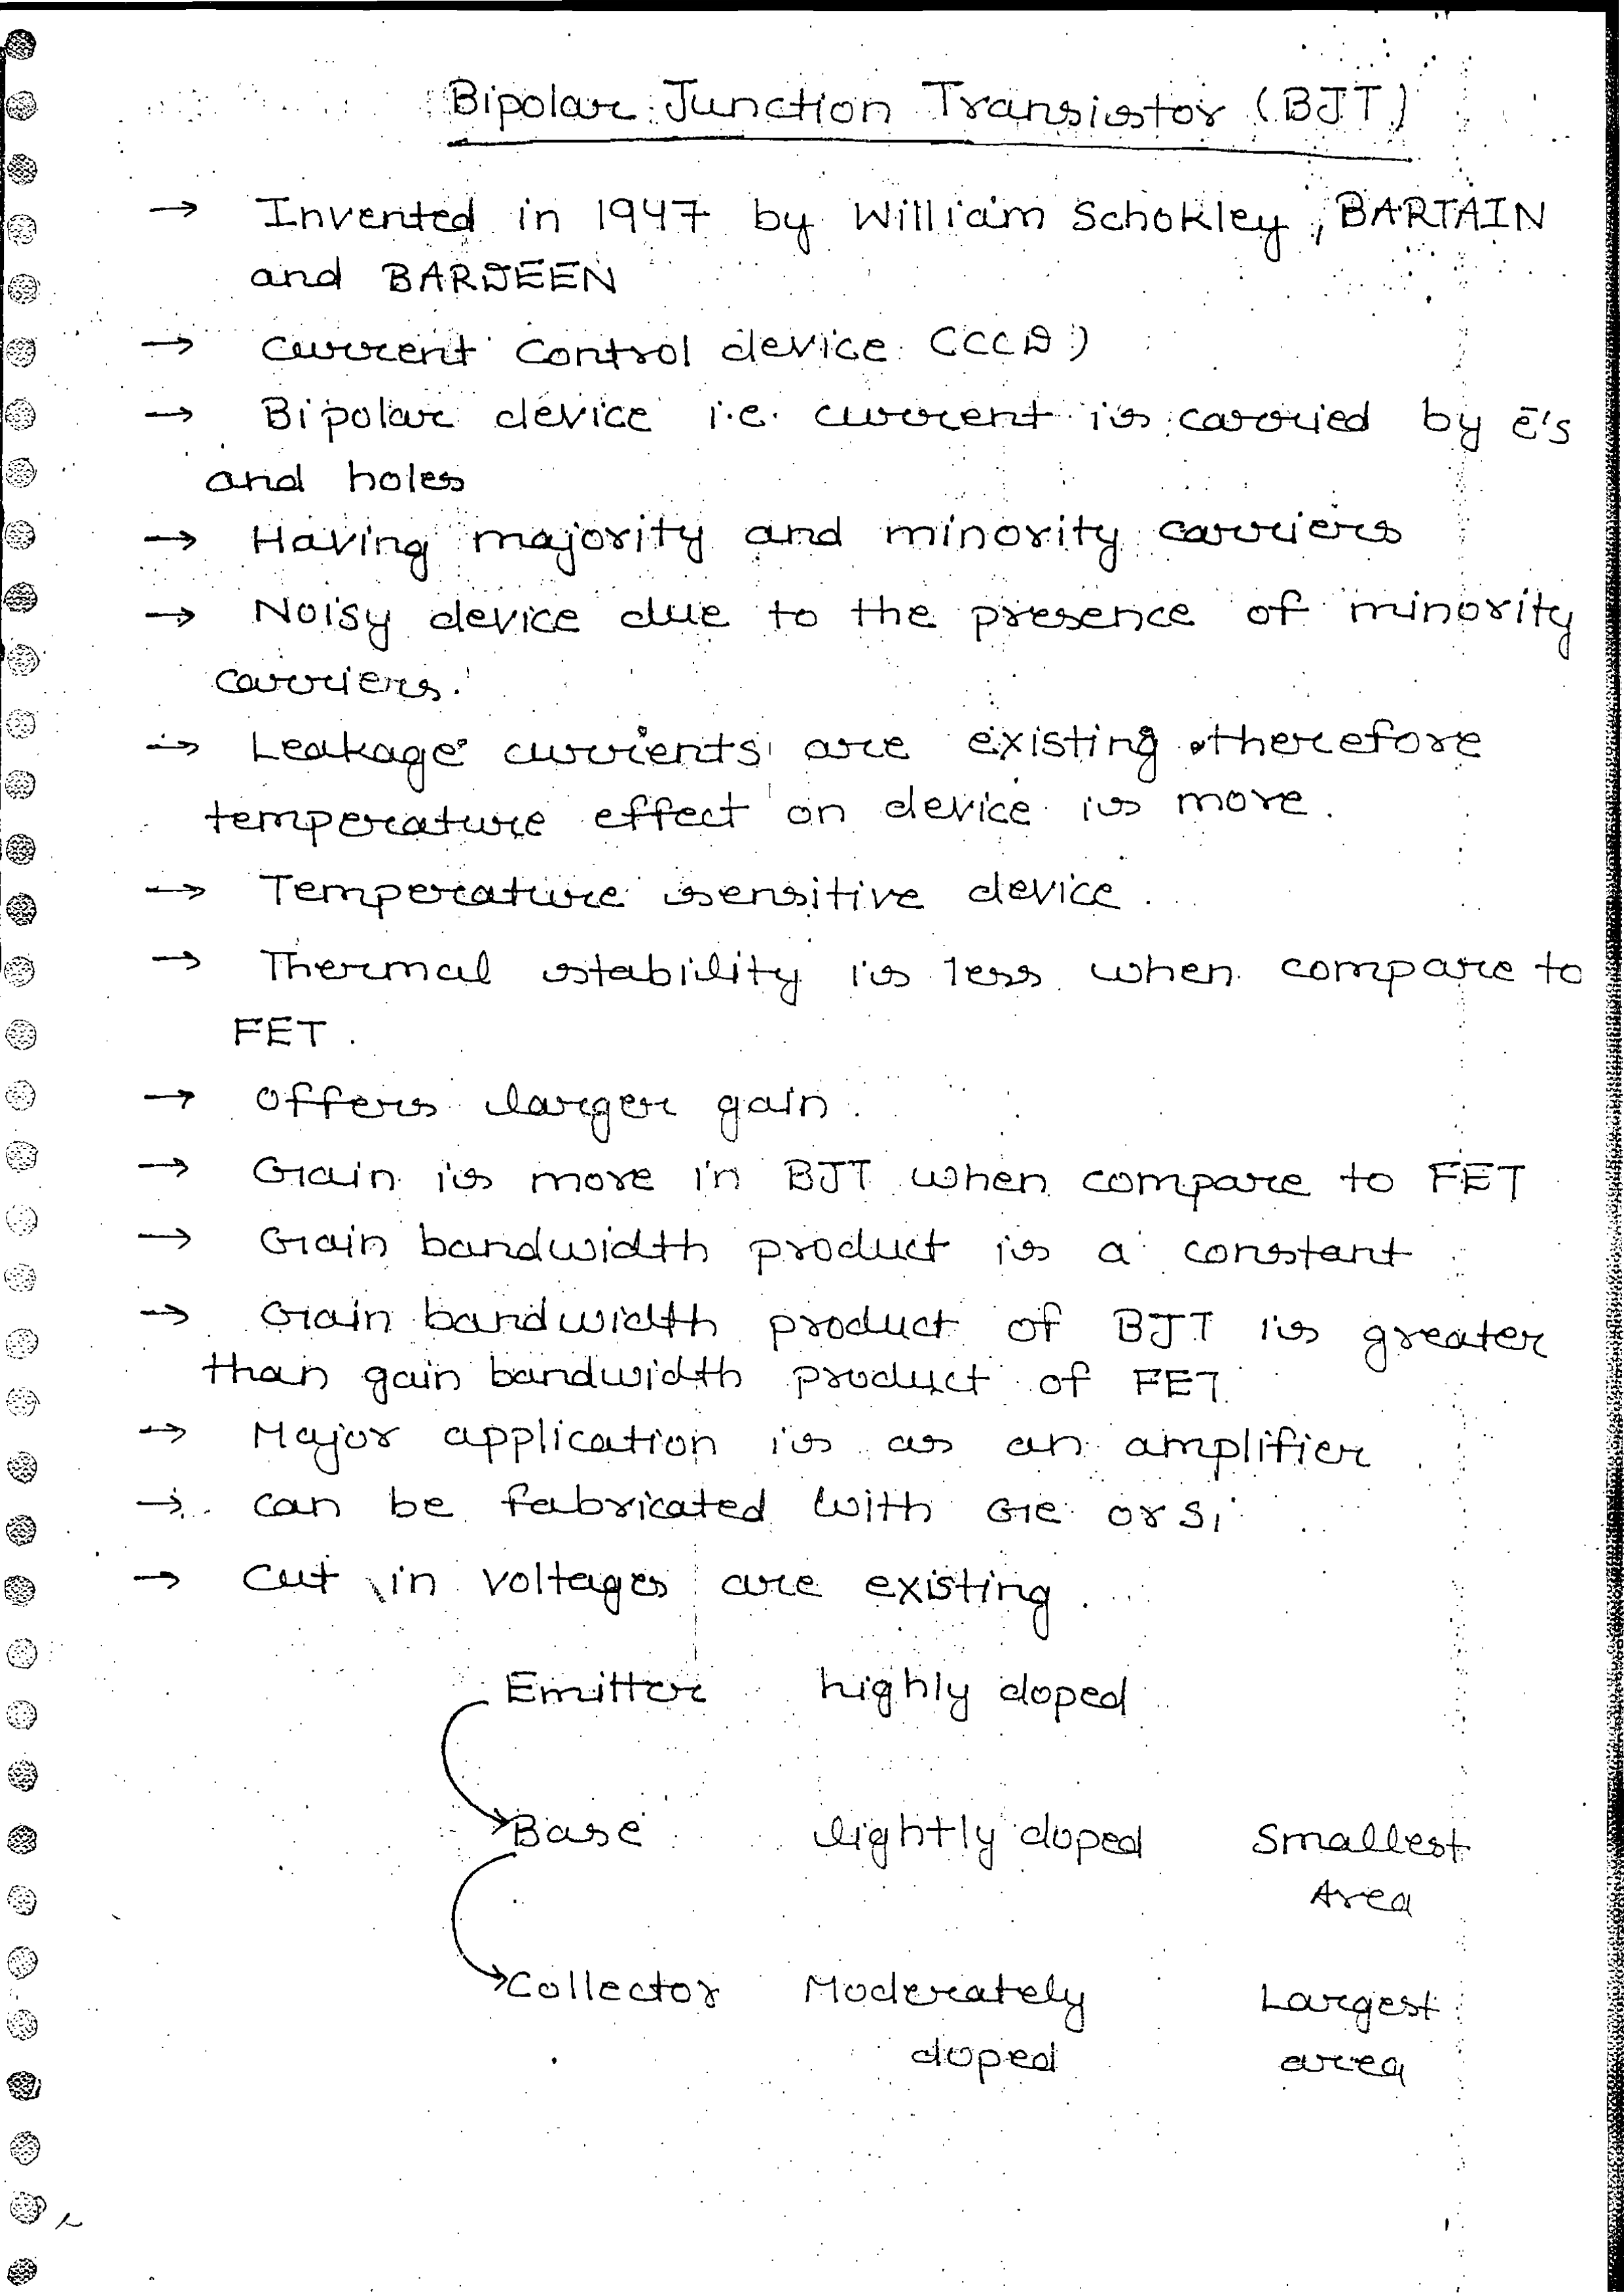 Bipolar Junction Transistor (BJT)
→ Invented in 1947 by William Schokley, BARTAIN
and BARDEEN
→ current control device (CCD)
→ Bipolar device i.e. current is carried by ē's
and holes
→ Having majority and minority carriers
→ Noisy device due to the presence of minority
carriers.
→ Leakage currents are existing therefore
temperature effect on device is more.
→ Temperature sensitive device.
→ Thermal stability is less when compare to
FET.
→ Offers larger gain.
→ Gain is more in BJT when compare to FET
→ Gain bandwidth product is a constant
→ Gain bandwidth product of BJT is greater
than gain bandwidth product of FET
→ Major application is as an amplifier
→ can be fabricated with Ge or Si
→ Cut in voltages are existing.
Emitter highly doped
Base lightly doped Smallest
Area
Collector Moderately Largest
doped area